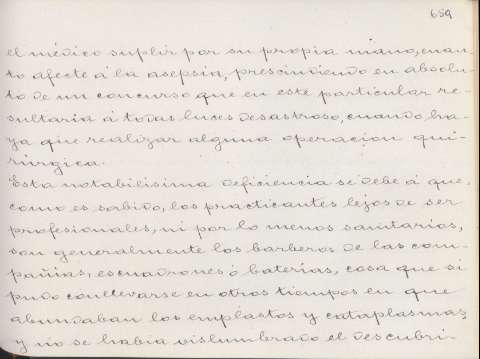 659
el médico suplir por su propia mano, cuan-
to afecte á la asepsia, prescindiendo en absolu-
to de un concurso que en este particular re-
sultaria á todas luces desastroso, cuando ha-
ya que realizar alguna operacion qui-
rúrgica.
Esta notabilisima deficiencia se debe á que,
como es sabido, los practicantes lejos de ser
profesionales, ni por lo menos sanitarios,
son generalmente los barberos de las com-
pañias, escuadrones ó baterías, cosa que si
pudo conllevarse en otros tiempos en que
abundaban los emplastos y cataplasmas,
y no se habia vislumbrado el descubri-